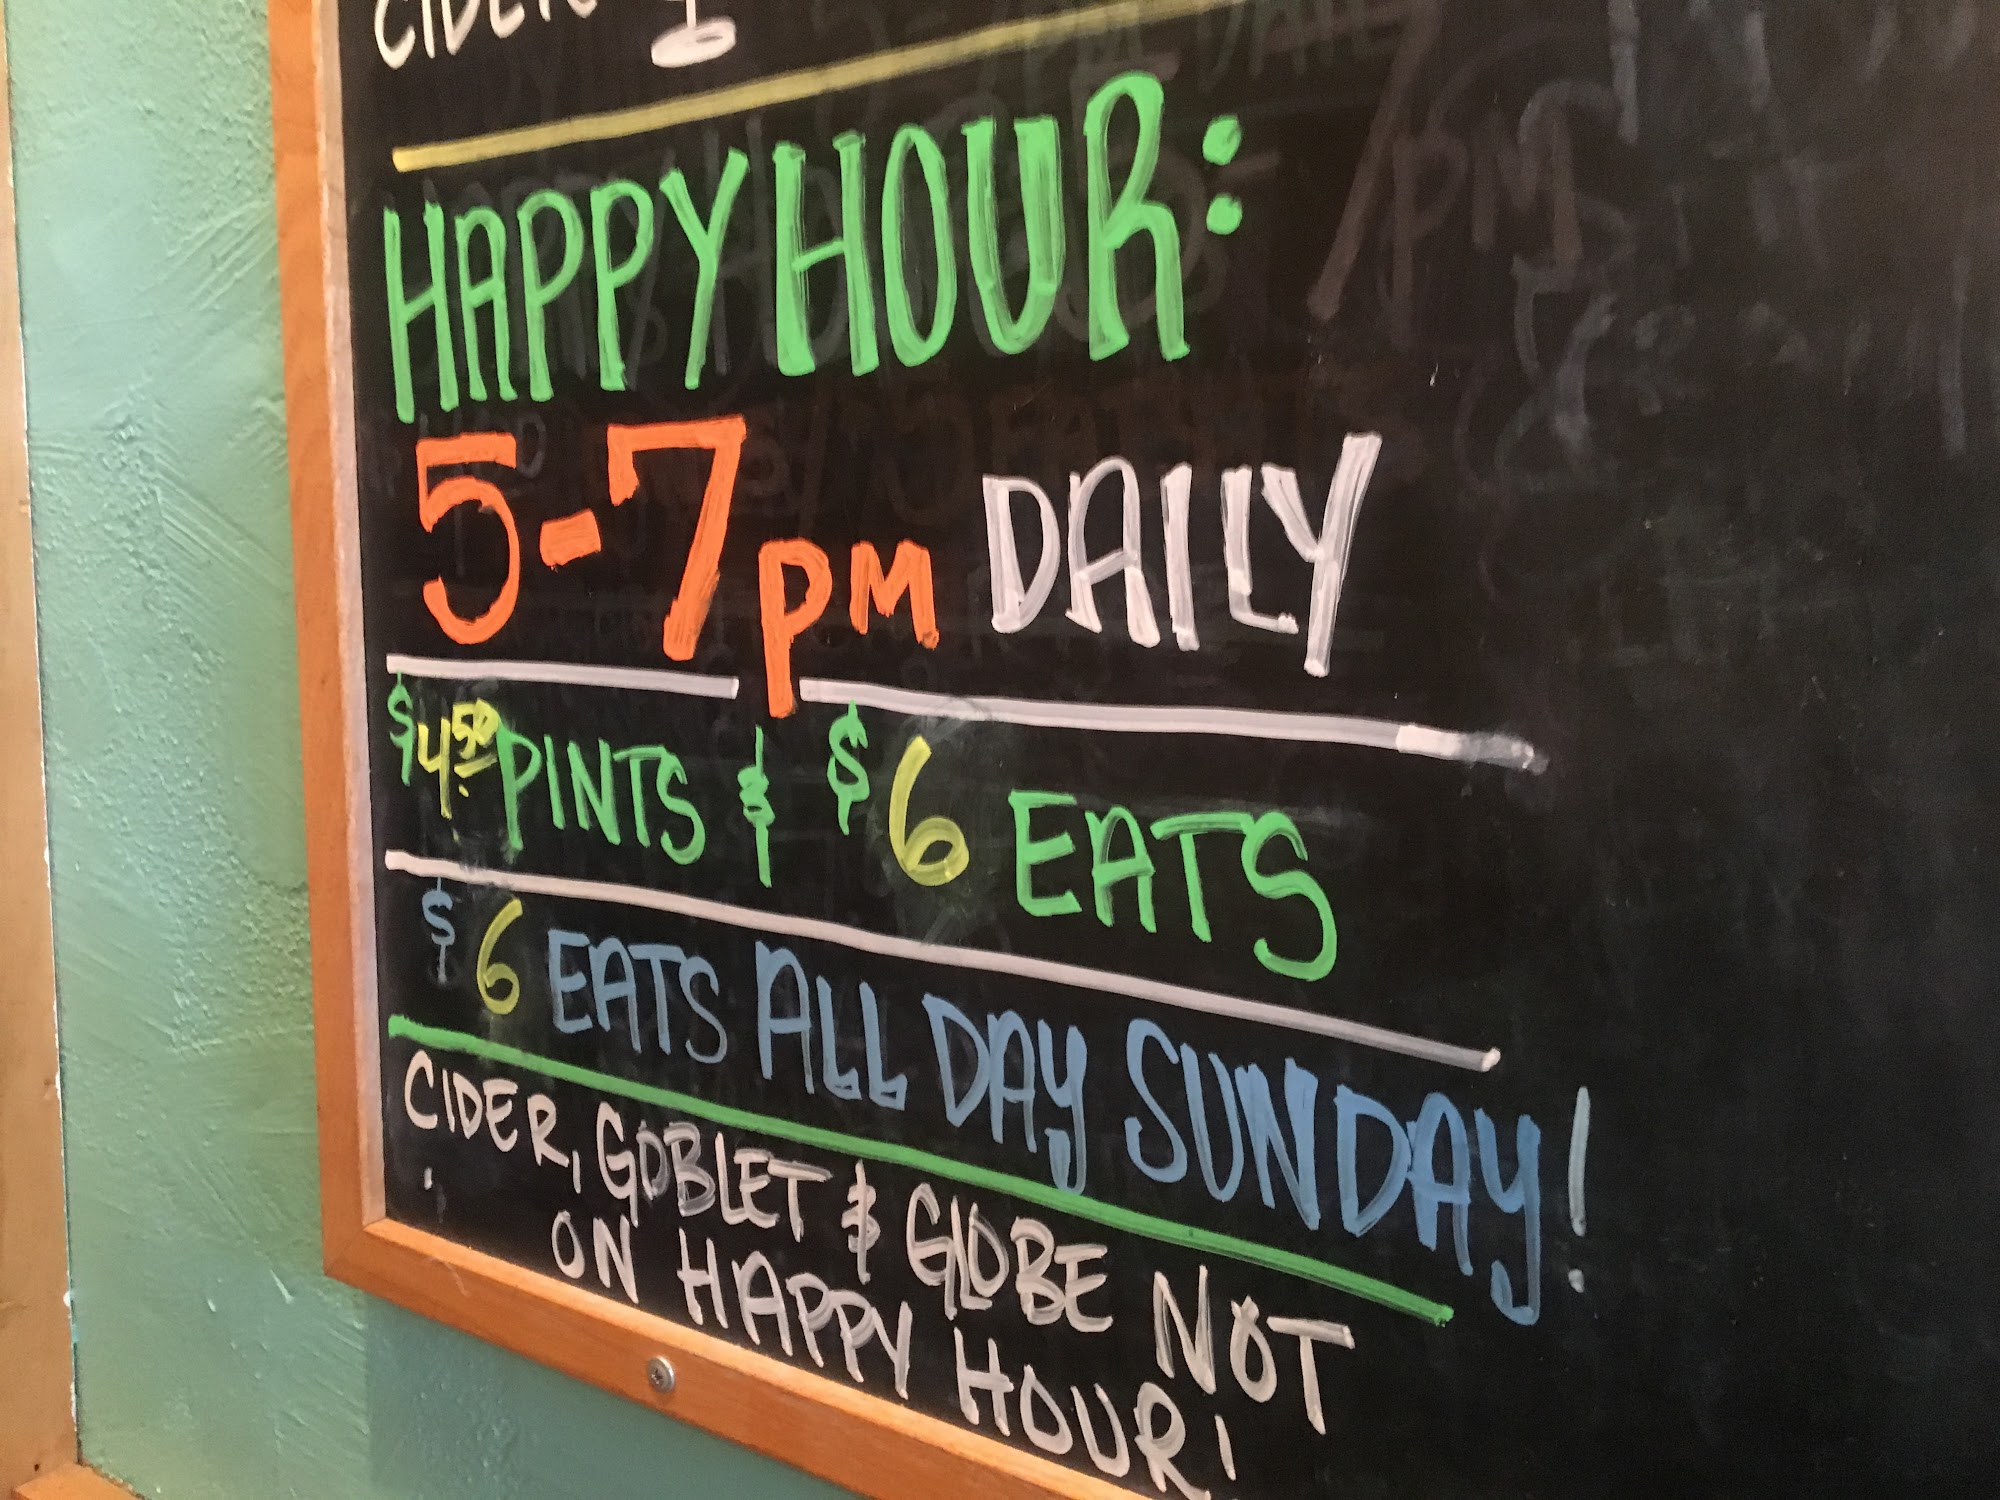 CIDER
HAPPY HOUR:
5-7PM DAILY
$4.50 PINTS & $6 EATS
$6 EATS ALL DAY SUNDAY!
CIDER, GOBLET & GLOBE NOT
ON HAPPY HOUR!